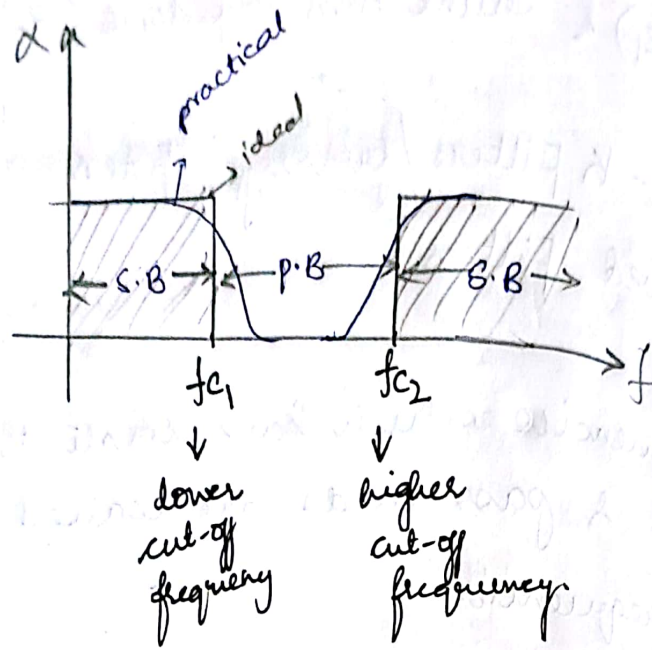 α
practical
ideal
S.B
P.B
S.B
fc1
fc2
f
lower
cut-off
frequency
higher
cut-off
frequency.